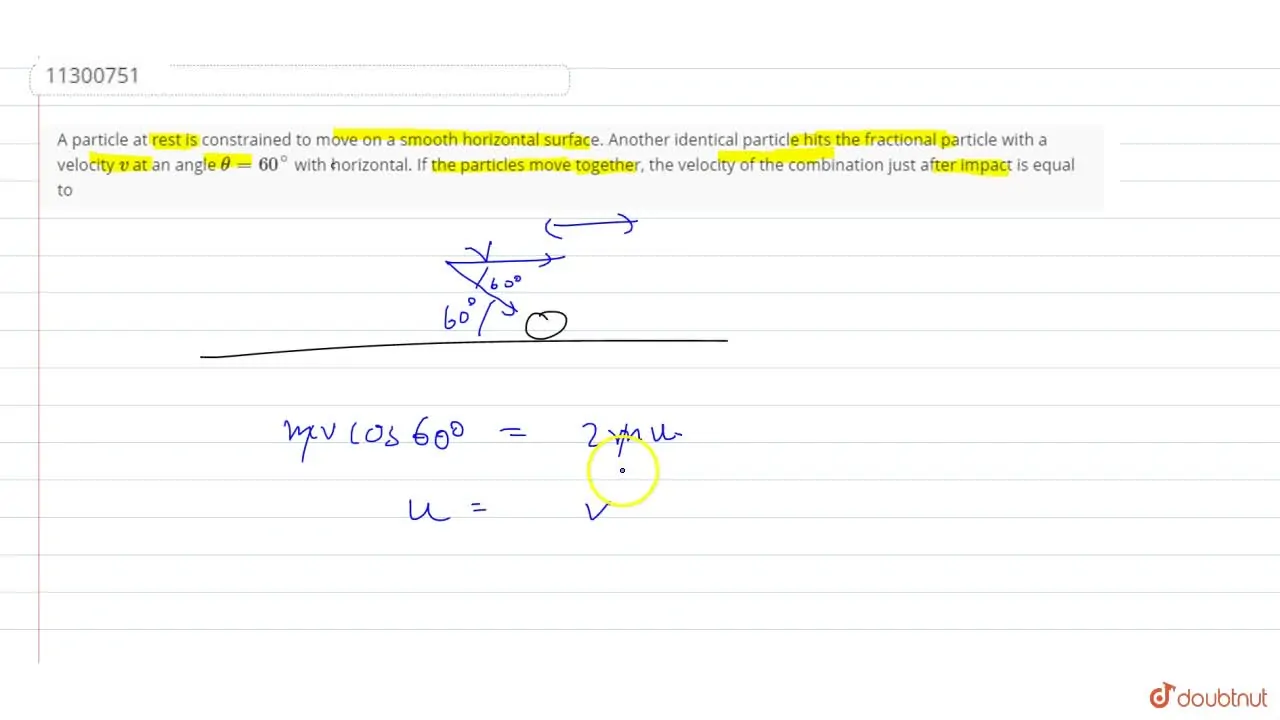 11300751
A particle at rest is constrained to move on a smooth horizontal surface. Another identical particle hits the fractional particle with a
velocity v at an angle θ = 60° with horizontal. If the particles move together, the velocity of the combination just after impact is equal
to
v
60°
60°
mv cos 60° = 2mu
u = v
doubtnut